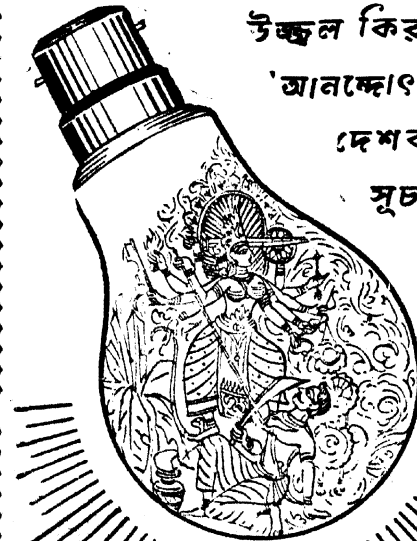 উজ্জ্বল কির
'আনন্দোৎ
দেশব
সূচ